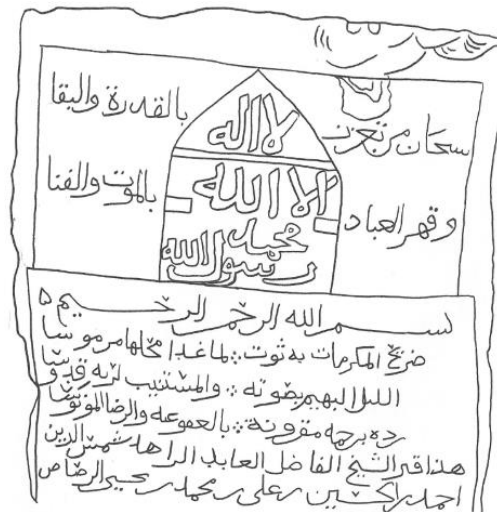 سبحان من تعزز بالقدرة والبقا
وقهر العباد بالموت والفنا
لا اله
الا الله
محمد
رسول الله
بسم الله الرحمن الرحيم
ضريح المكرمات به ثوت لما غدا محلها مرموسا
الليل البهيم بصوته والمستثيب لربه
برحمه مقرونة بالعفو عنه والرضا
هذا قبر الشيخ الفاضل العابد الزاهد شمس الدين
احمد بن الحسين بن علي بن محمد بن يحيى الرصاص